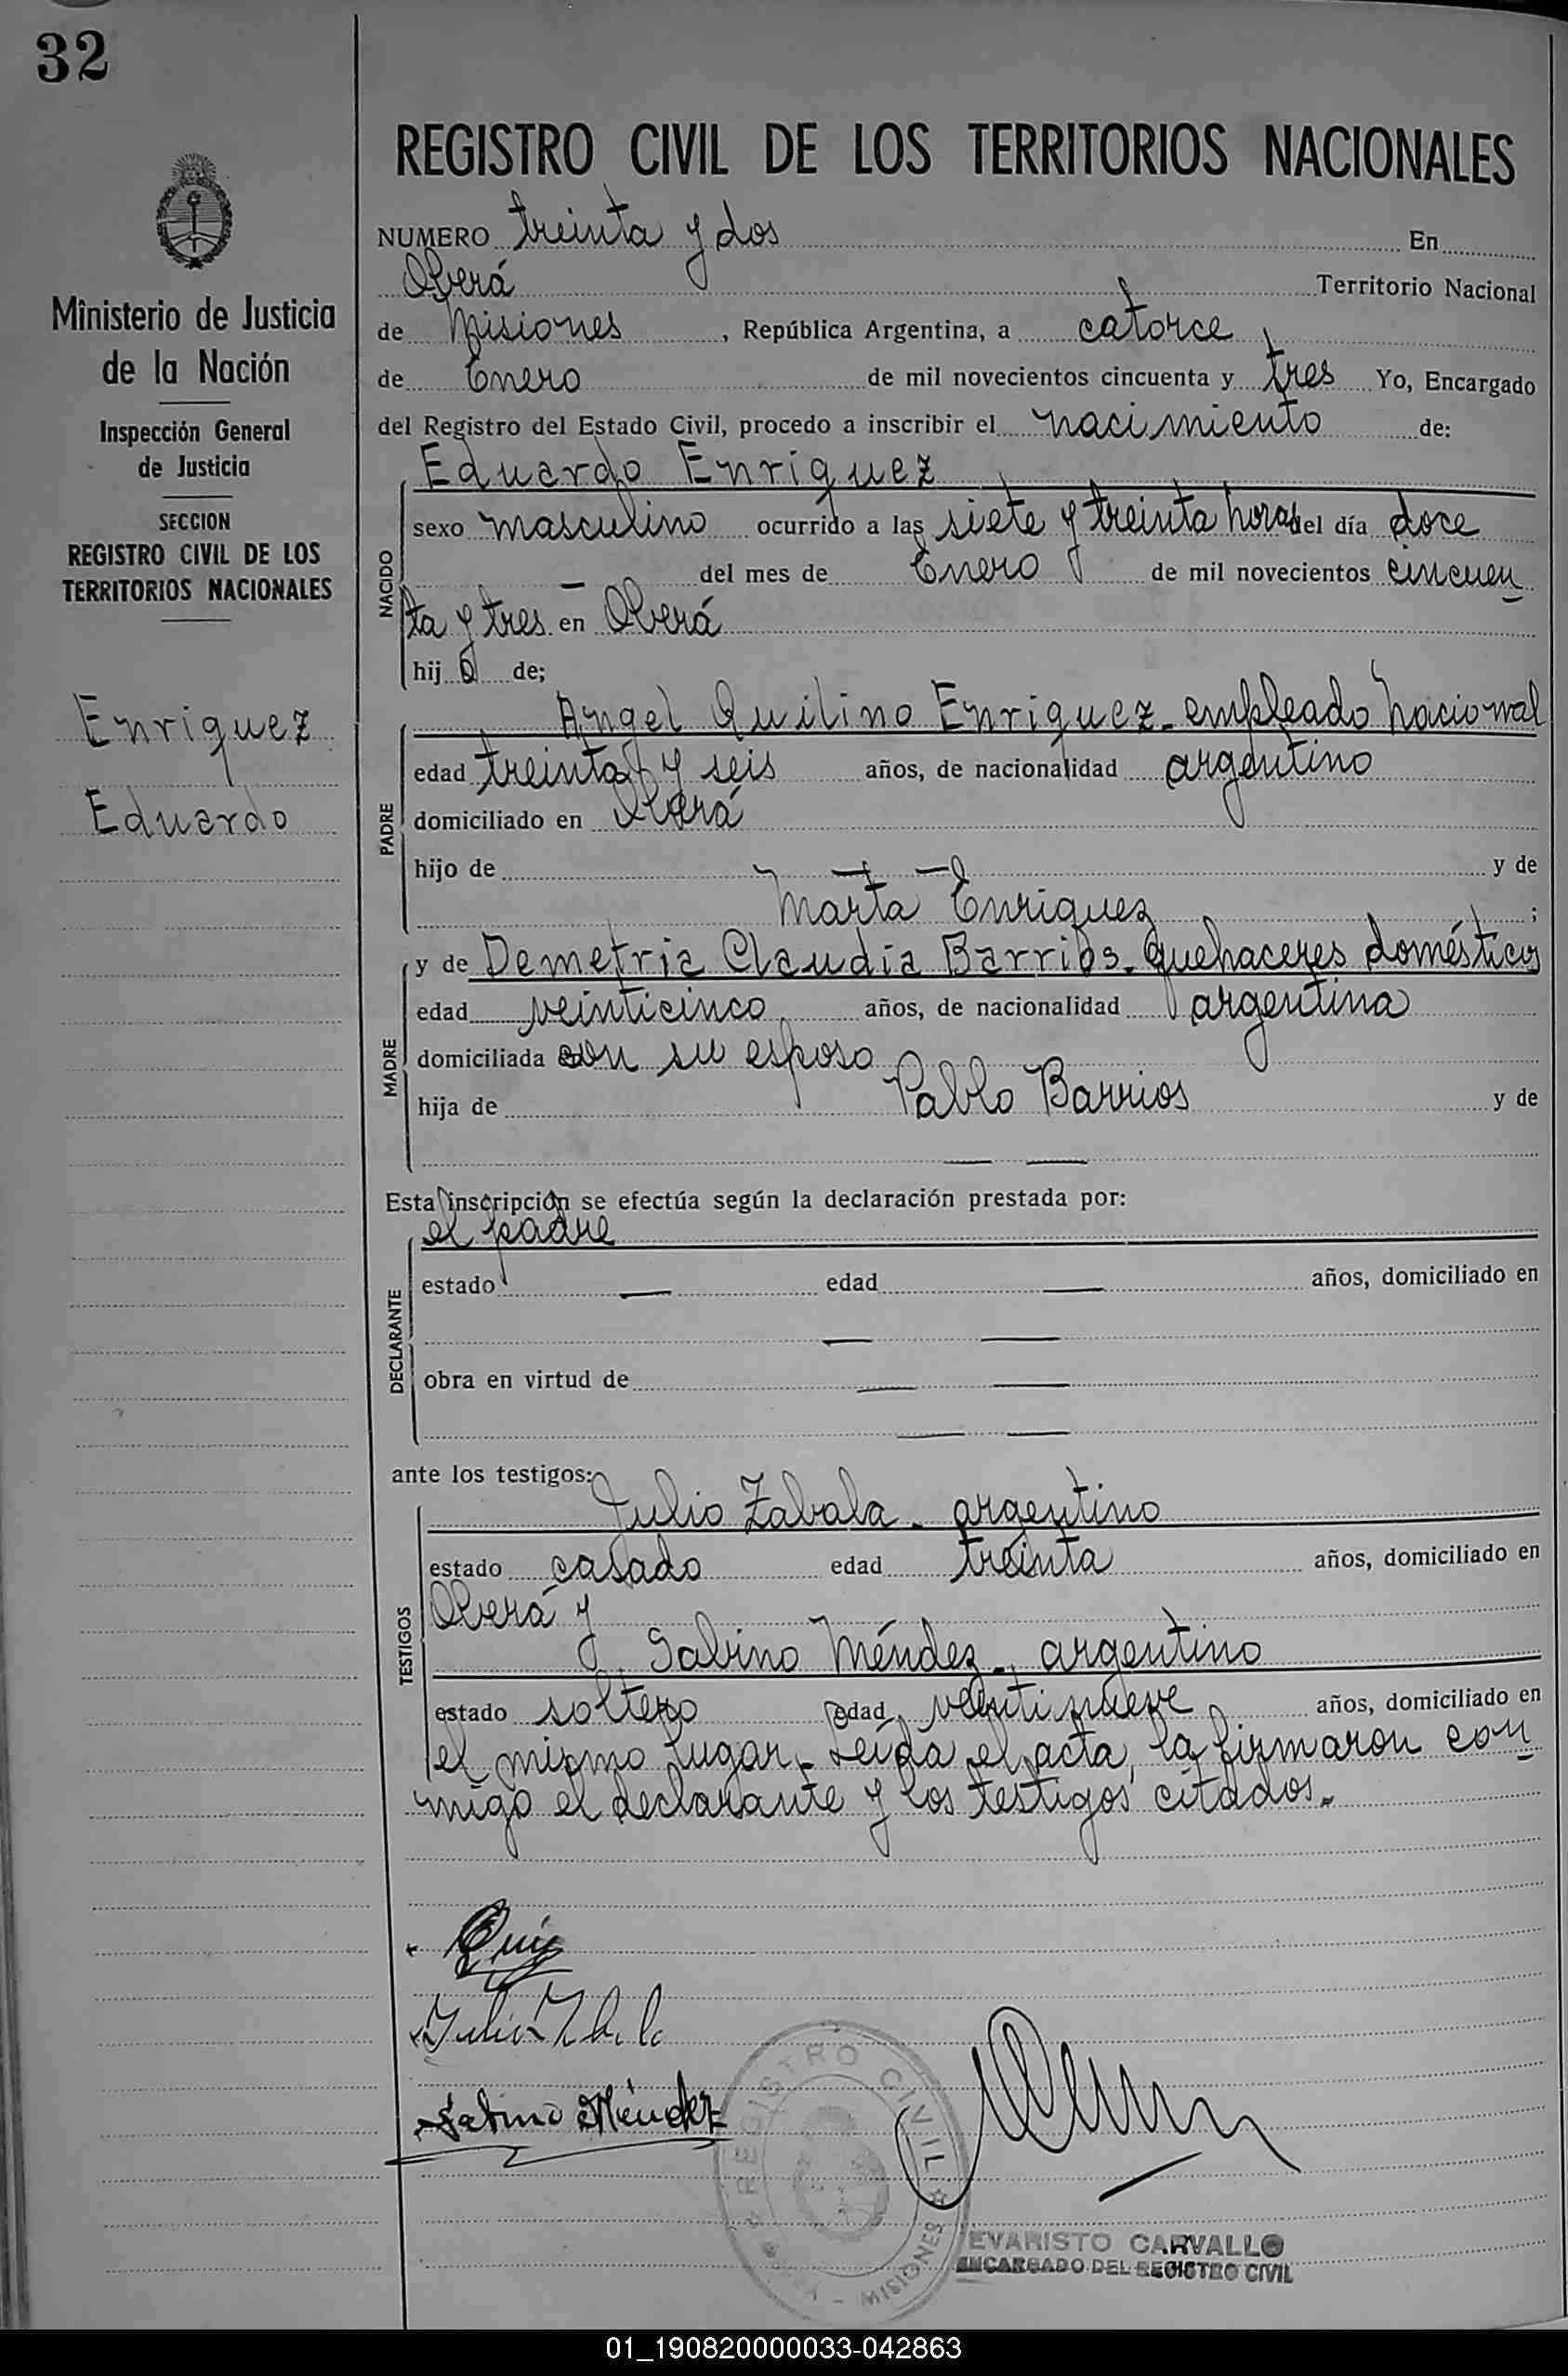 32
REGISTRO CIVIL DE LOS TERRITORIOS NACIONALES
Ministerio de Justicia
de la Nación
Inspección General
de Justicia
SECCION
REGISTRO CIVIL DE LOS
TERRITORIOS NACIONALES
Enriquez
Eduardo
NUMERO treinta y dos En
Oberá Territorio Nacional
de Misiones, República Argentina, a catorce
de Enero de mil novecientos cincuenta y tres Yo, Encargado
del Registro del Estado Civil, procedo a inscribir el nacimiento de:
NACIDO
Eduardo Enriquez
sexo masculino ocurrido a las siete y treinta horas del día doce
— del mes de Enero de mil novecientos cincuen
ta y tres en Oberá
hijo de;
PADRE
Angel Quilino Enriquez - empleado nacional
edad treinta y seis años, de nacionalidad argentino
domiciliado en Oberá
hijo de — — y de
Marta Enriquez ;
MADRE
y de Demetria Claudia Barrios - quehaceres domésticos
edad veinticinco años, de nacionalidad argentina
domiciliada con su esposo
hija de Pablo Barrios y de
— —
Esta inscripción se efectúa según la declaración prestada por:
DECLARANTE
el padre
estado — edad — años, domiciliado en
— —
obra en virtud de — —
— —
ante los testigos:
TESTIGOS
Julio Zabala - argentino
estado casado edad treinta años, domiciliado en
Oberá y
Sabino Méndez - argentino
estado soltero edad veintinueve años, domiciliado en
el mismo lugar - Leída el acta, la firmaron con
migo el declarante y los testigos citados.-
Sabino Méndez
REGISTRO CIVIL
MISIONES
EVARISTO CARVALLO
ENCARGADO DEL REGISTRO CIVIL
01_190820000033-042863